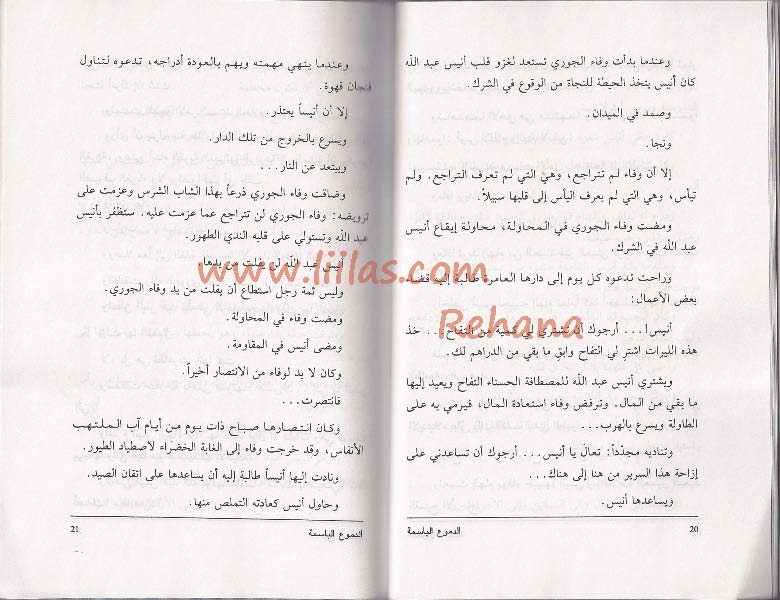 وعندما بدأت وفاء الجوري تستعد لغزو قلب أنيس عبد الله
كان أنيس يتخذ الحيطة للنجاة من الوقوع في الشرك.
وصمد في الميدان.
ونجا.
إلا أن وفاء لم تتراجع، وهي التي لم تعرف التراجع. ولم
تيأس، وهي التي لم يعرف اليأس إلى قلبها سبيلاً.
ومضت وفاء الجوري في المحاولة، محاولة إيقاع أنيس
عبد الله في الشرك.
وراحت تدعوه كل يوم إلى دارها العامرة طالبة إليه قضاء
بعض الأعمال:
أنيس!... أرجوك أن تشتري لي كمية من التفاح... خذ
هذه الليرات اشترِ لي التفاح وابقِ ما بقي من الدراهم لك.
ويشتري أنيس عبد الله للمصطافة الحسناء التفاح ويعيد إليها
ما بقي من المال. وترفض وفاء استعادة المال، فيرمي به على
الطاولة ويسرع بالهرب...
وتناديه مجدّداً: تعالَ يا أنيس... أرجوك أن تساعدني على
إزاحة هذا السرير من هنا إلى هناك...
ويساعدها أنيس.
20
الدموع الباسمة
وعندما ينهي مهمته ويهم بالعودة أدراجه، تدعوه لتناول
فنجان قهوة.
إلا أن أنيساً يعتذر.
ويسرع بالخروج من تلك الدار.
ويبتعد عن النار...
وضاقت وفاء الجوري ذرعاً بهذا الشاب الشرس وعزمت على
ترويضه: وفاء الجوري لن تتراجع عما عزمت عليه. ستظفر بأنيس
عبد الله وتستولي على قلبه الندي الطهور.
أنيس عبد الله لن يفلت من يدها.
وليس ثمة رجل استطاع أن يفلت من يد وفاء الجوري.
ومضت وفاء في المحاولة.
ومضى أنيس في المقاومة.
وكان لا بد لوفاء من الانتصار أخيراً.
فانتصرت...
وكان انتصارها صباح ذات يوم من أيام آب الملتهب
الأنفاس، وقد خرجت وفاء إلى الغابة الخضراء لاصطياد الطيور.
ونادت إليها أنيساً طالبة إليه أن يساعدها على اتقان الصيد.
وحاول أنيس كعادته التملص منها.
21
الدموع الباسمة
www.liilas.com
Rehana